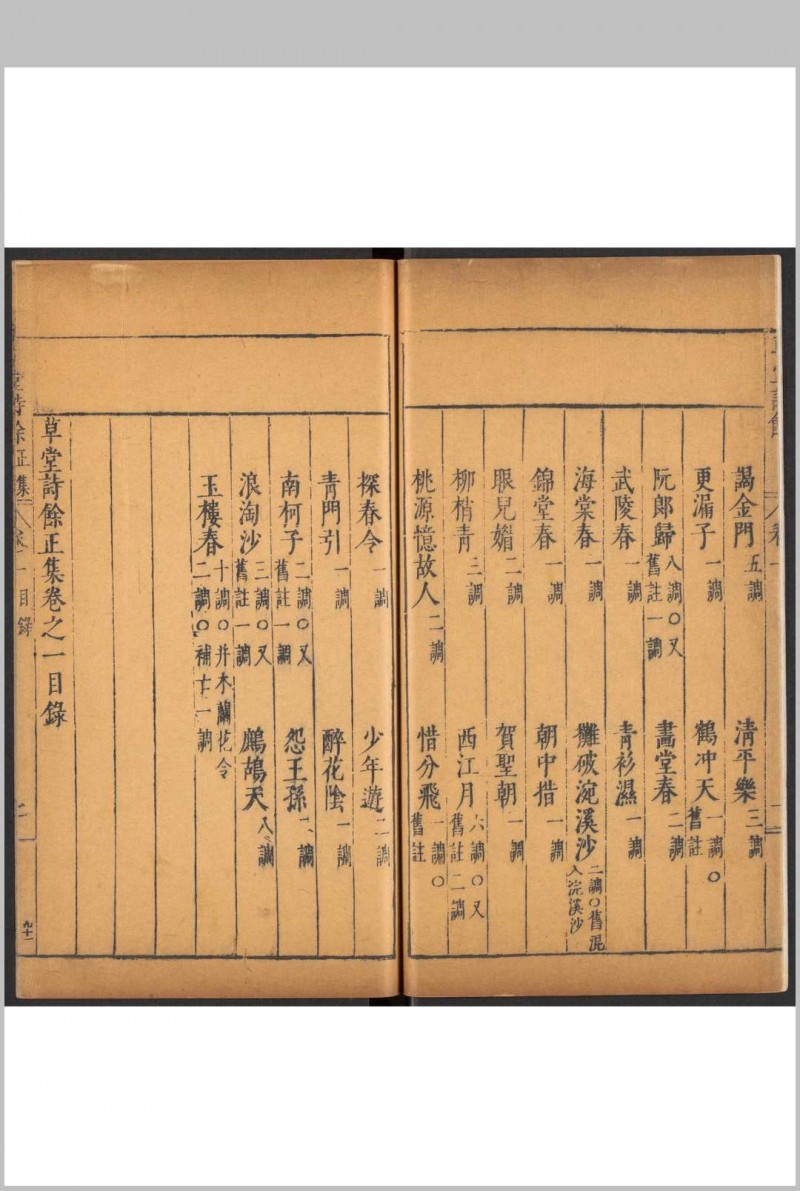 謁金門 五調 清平樂 三調
更漏子 一調 鶴冲天 一調〇舊註
阮郎歸 八調〇又舊註一調 畵堂春 二調
武陵春 一調 青衫濕 一調
海棠春 一調 攤破浣溪沙 二調〇舊混入浣溪沙
錦堂春 一調 朝中措 一調
眼兒媚 二調 賀聖朝 一調
柳梢青 三調 西江月 六調〇又舊註二調
桃源憶故人 二調 惜分飛 一調〇舊註
探春令 一調 少年遊 二調
青門引 一調 醉花陰 一調
南柯子 二調〇又舊註一調 怨王孫 二調
浪淘沙 三調〇又舊註一調 鷓鴣天 八調
玉樓春 十調〇并木蘭花令二調〇補七一調
草堂詩餘正集卷之一目錄
堂詩餘正集 卷一目錄